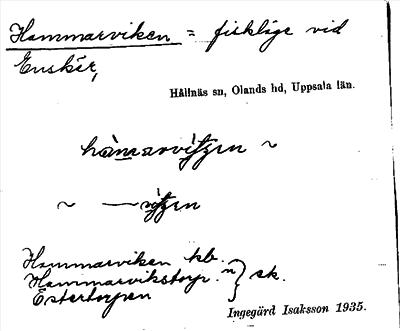 Hammarviken = fiskläge vid
Enskär,
Hållnäs sn, Olands hd, Uppsala län.
hàmarvi̹tʒen ~
~ — vi̹tʒen
Hammarviken kb.
Hammarvikstorp. n } ek.
Estertorpen
Ingegärd Isaksson 1935.